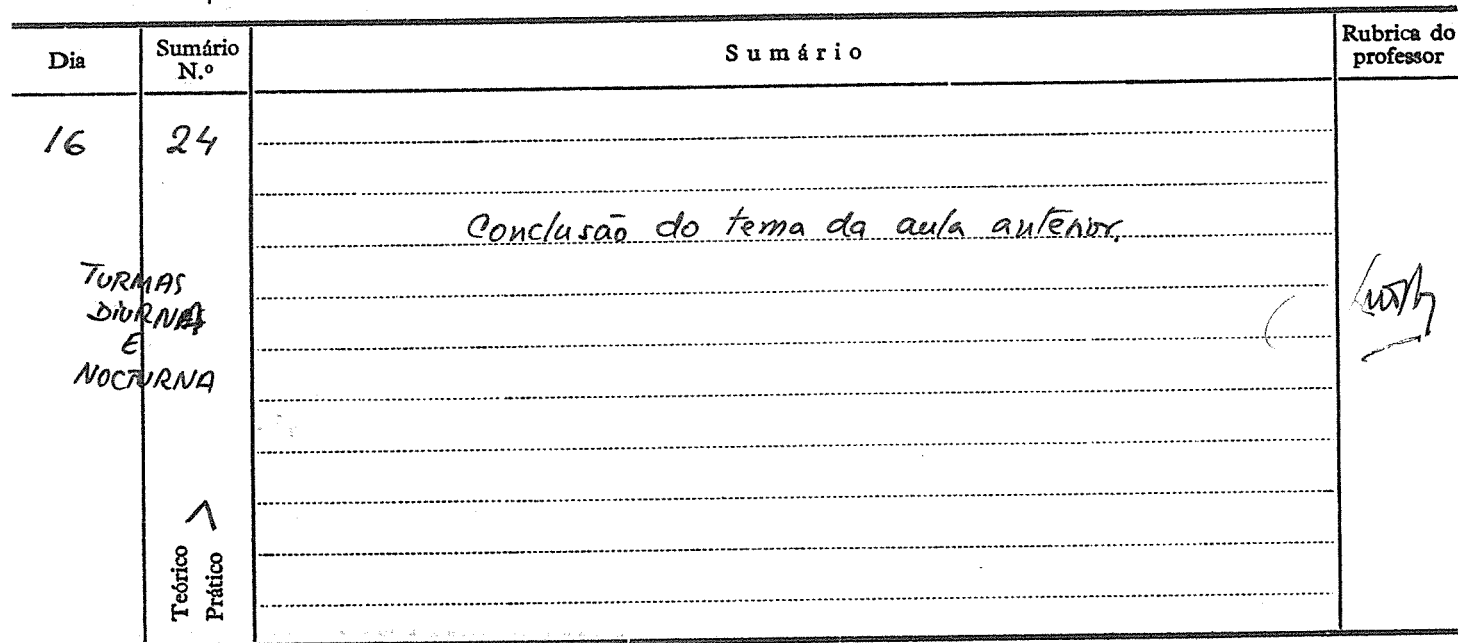 Dia
Sumário N.º
Sumário
Rubrica do professor
16
24
Conclusão do tema da aula anterior.
TURMAS
DIURNAS
E
NOCTURNA
Teórico
Prático